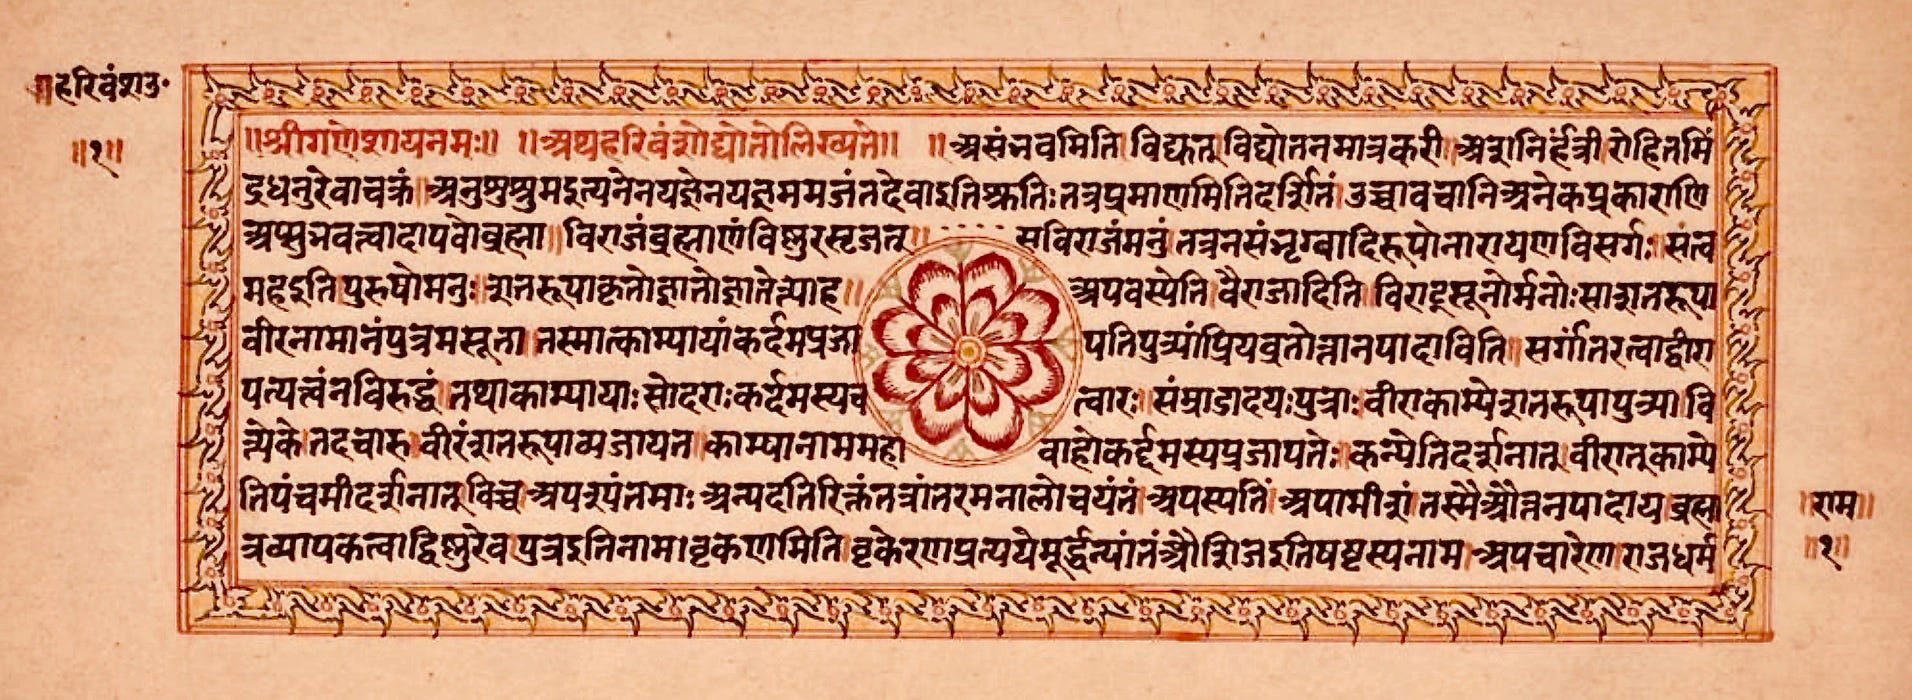 ॥हरिवंशउ॰
॥१॥
॥श्रीगणेशायनमः॥ ॥अथहरिवंशोद्योतोलिख्यते॥ ॥असंभवमिति विद्युत्तु विद्योतनमात्रकरी अशनिर्हंत्री रोहितमिं
द्रधनुरेवाचक्रं अनुशुश्रुमइत्यनेनयज्ञेनयज्ञममजंतदेवाइतिश्रुतिःतत्रप्रमाणमितिदर्शितं उच्चावचानिअनेकप्रकाराणि
अप्सुभवत्वादापवोब्रह्मा विराजंब्रह्माणंविष्णुरसृजत्॥ सविराजंमनुं तत्रनसंभृग्वादिरूपोनारायणविसर्गः
महइति पुरुषोमनुः शतरूपाकृतोज्ञातोज्ञातेत्याह॥ अपवस्येति वैराजादिति विराट्सूनोर्मनोःसाशतरूपा
वीरनामानंपुत्रमसूता तस्मात्काम्यायांकर्दमप्रजा पतिपुत्र्यांप्रियव्रतोत्तानपादाविति सर्गांतरत्वाद्वीरा
पत्यत्वंनविरुद्धं तथाकाम्यायाःसोदराःकर्दमस्यच त्वारः संम्राडादयःपुत्राः वीराकाम्येशतरूपापुत्र्या वि
त्येके तदचारु वीरंशतरूपाव्यजायत काम्यानाममहा वाहोकर्द्दमस्यप्रजापतेः कन्येतिदर्शनात् वीरात्काम्ये
तिपंचमीदर्शनात् विच्च अपरुपंतमाः अन्यदतिरिक्तंतत्रांतरमनालोचयंतं अपस्पतिं अपामीशं तस्मैऔत्तनपादाय ब्रह्मा
त्रव्यापकत्वाद्विष्णुरेव पुत्रइतिनाम।वृकणमिति वृकेरणप्रत्ययेमूर्द्धन्यांतंऔशिजइतिषष्टस्यनाम अपचारेण राजधर्म
॥राम॥
॥१॥